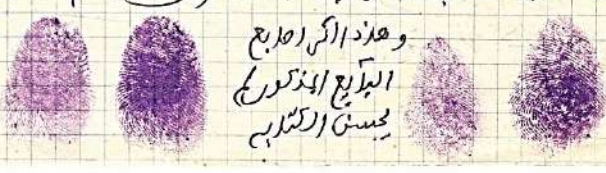 وهذا اثر اصابع
البائع المذكور لم
يحسن الكتابه